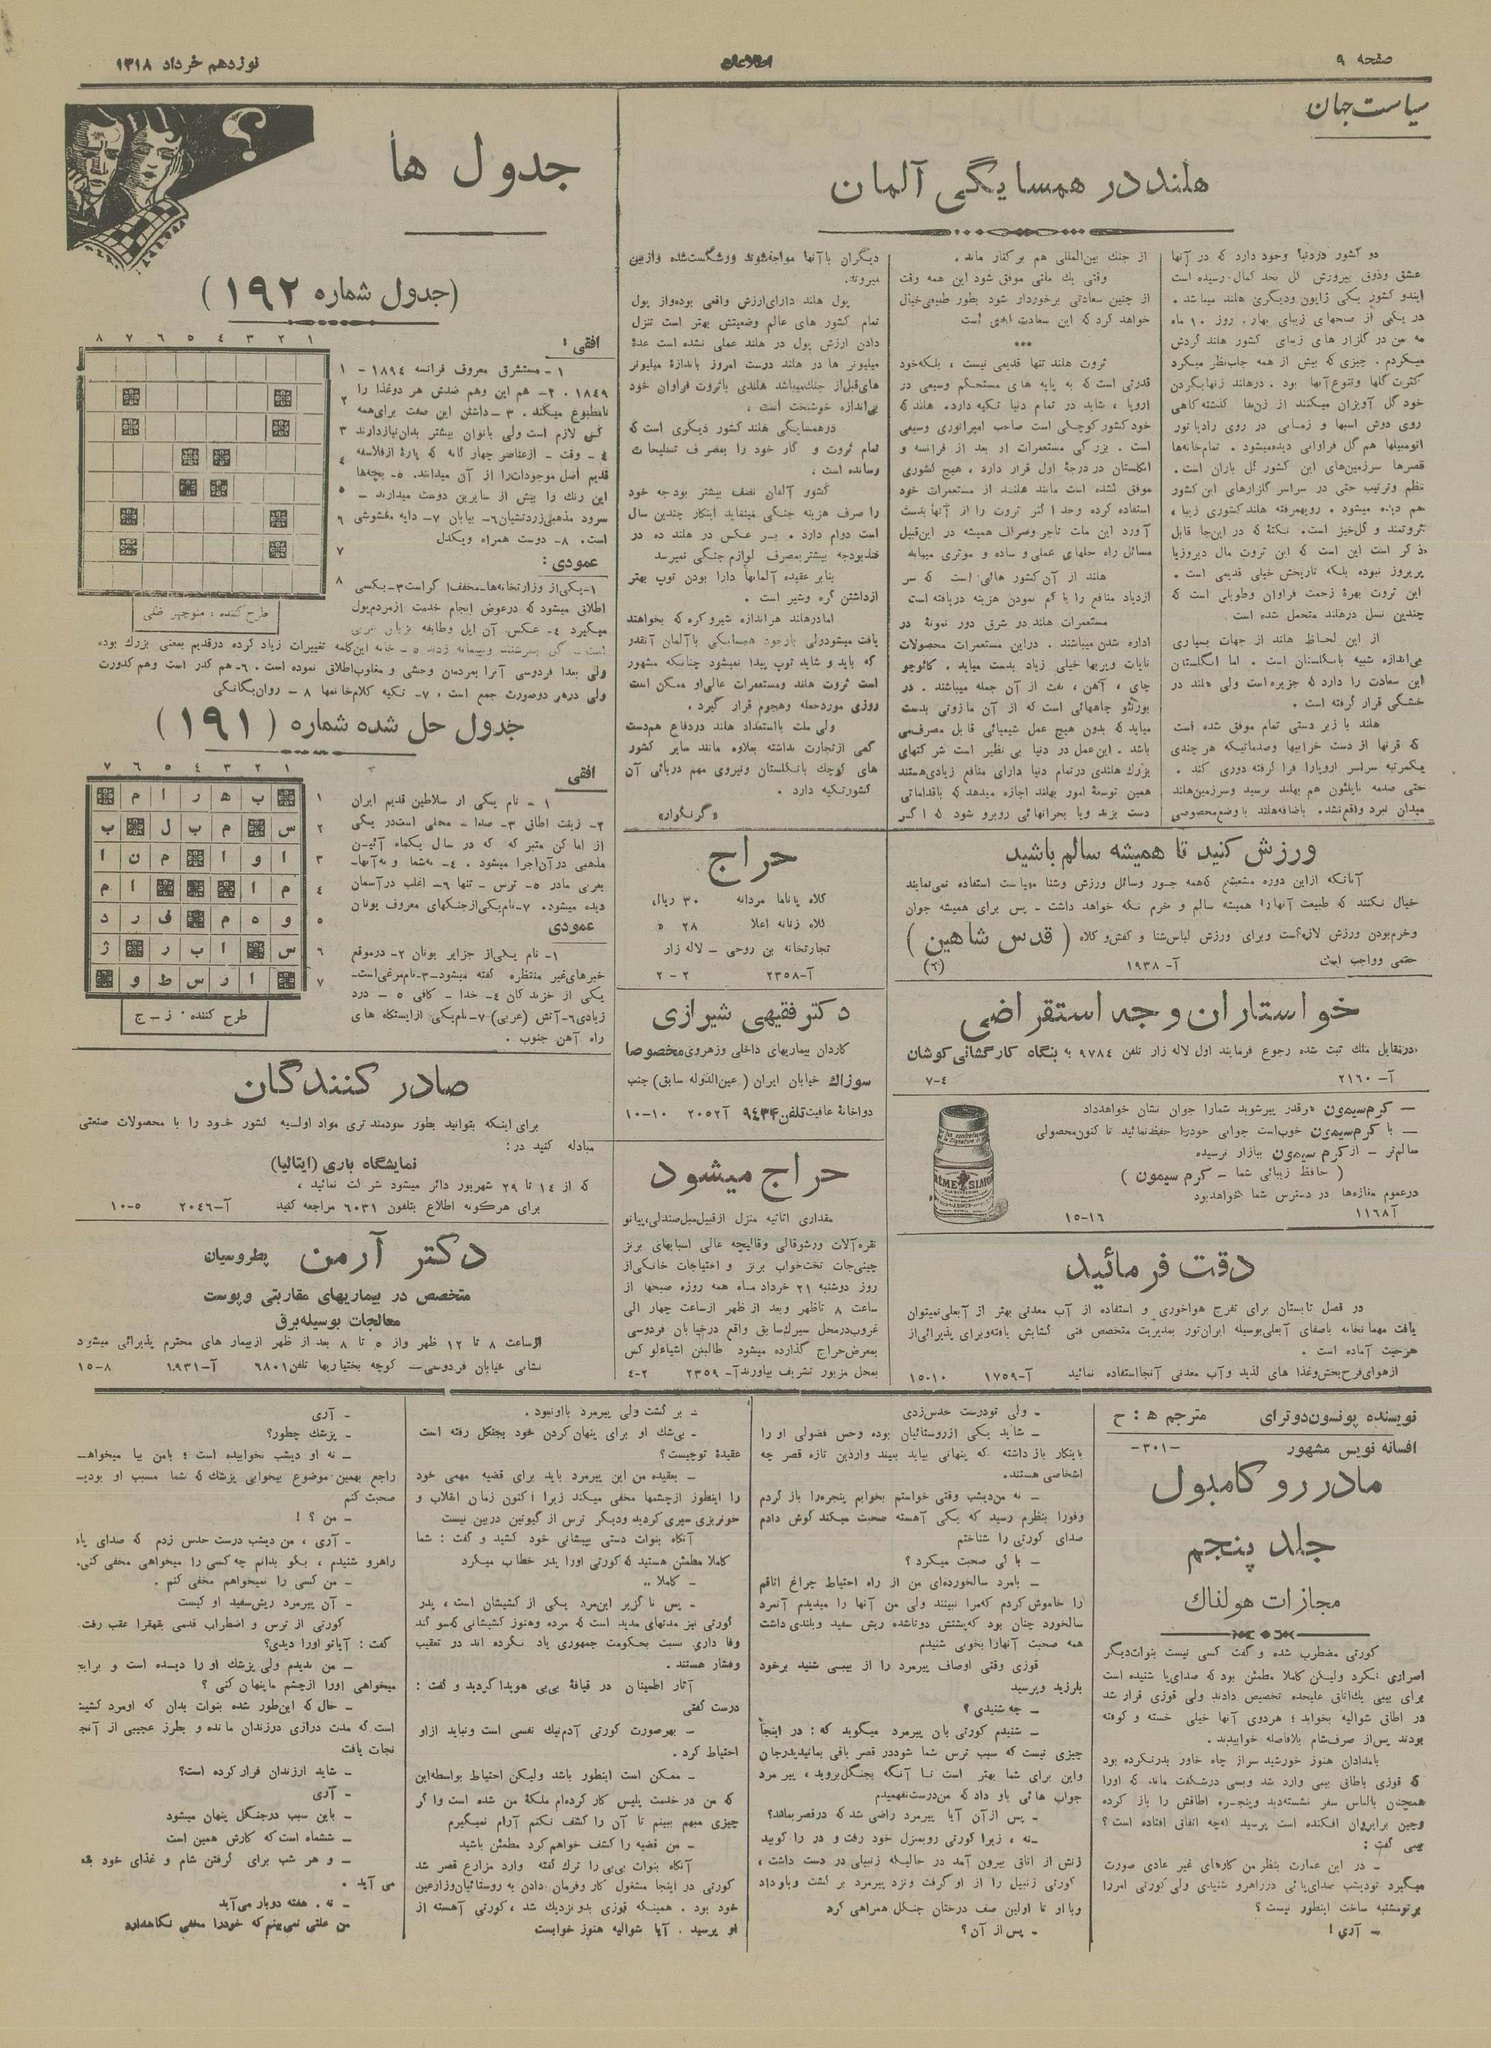 صفحه ۹
اطلاعات
نوزدهم خرداد ۱۳۱۸
سیاست جهان
هلند در همسایگی آلمان
دو کشور در دنیا وجود دارد که در آنها
عشق و ذوق بپرورش گل بحد کمال رسیده است
ایندو کشور یکی ژاپون و دیگری هلند میباشد.
در یکی از صبحهای زیبای بهار. روز ۱۰ ماه
مه من در گلزار های زیبای کشور هلند گردش
میکردم. چیزی که بیش از همه جلب نظر میکرد
کثرت گلها و تنوع آنها بود. در هلند زنها بگردن
خود گل آویزان میکنند از زنها گذشته گاهی
روی دوش اسبها و زمانی در روی رادیاتور
اتومبیلها هم گل فراوانی دیده میشود. تمام خانه‌ها
قصرها سرزمین‌های این کشور گل باران است.
نظم و ترتیب حتی در سراسر گلزارهای این کشور
هم دیده میشود. رویهمرفته هلند کشوری زیبا،
ثروتمند و گل‌خیز است. نکتهٔ که در اینجا قابل
ذکر است این است که این ثروت مال دیروز یا
پریروز نبوده بلکه تاریخش خیلی قدیمی است.
این ثروت بهرهٔ زحمت فراوان و طویلی است که
چندین نسل در هلند متحمل شده است.
از این لحاظ هلند از جهات بسیاری
بی‌اندازه شبیه بانگلستان است. اما انگلستان
این سعادت را دارد که جزیره است ولی هلند در
خشگی قرار گرفته است.
هلند با زبر دستی تمام موفق شده است
که قرنها از دست خرابیها و صدماتیکه هر چندی
یکمرتبه سراسر اروپا را فرا گرفته دوری کند.
حتی صدمه ناپلئون هم بهلند نرسید و سرزمین هلند
میدان نبرد واقع نشد. باضافه هلند با وضع مخصوصی
از جنگ بین‌المللی هم بر کنار ماند.
وقتی یک ملتی موفق شود این همه وقت
از چنین سعادتی برخوردار شود بطور طبیعی خیال
خواهد کرد که این سعادت ابدی است
***
ثروت هلند تنها قدیمی نیست، بلکه خود
قدرتی است که به پایه های مستحکم وسیعی در
اروپا، شاید در تمام دنیا تکیه دارد. هلند که
خود کشور کوچکی است صاحب امپراتوری وسیعی
است. بزرگی مستعمرات او بعد از فرانسه و
انگلستان در درجهٔ اول قرار دارد، هیچ کشوری
موفق نشده است مانند هلند از مستعمرات خود
استفاده کرده و حد اکثر ثروت را از آنها بدست
آورد این ملت تاجر و صراف همیشه در این قبیل
مسائل راه حلهای عملی و ساده و موثری مییابد
هلند از آن کشور هائی است که سر
ازدیاد منافع را با کم نمودن هزینه دریافته است
مستعمرات هلند در شرق دور نمونهٔ در
اداره شدن میباشند. در این مستعمرات محصولات
نایاب و پربها خیلی زیاد بدست میاید. کائوچو
چای، آهن، نفت از آن جمله میباشند. در
بورنئو چاههائی است که از آن مازوتی بدست
میاید که بدون هیچ عمل شیمیائی قابل مصرف می
باشد. این عمل در دنیا بی نظیر است شرکتهای
بزرگ هلندی در تمام دنیا دارای منافع زیادی هستند
همین توسعهٔ امور بهلند اجازه میدهد که باقداماتی
دست بزند و یا بحرانهائی روبرو شود که اگر
دیگران با آنها مواجه شوند ورشگست شده و از بین
میروند.
پول هلند دارای ارزش واقعی بوده و از پول
تمام کشور های عالم وضعیتش بهتر است تنزل
دادن ارزش پول در هلند عملی نشده است عدهٔ
میلیونر ها در هلند درست امروز باندازهٔ میلیونر
های قبل از جنگ میباشد هلندی با ثروت فراوان خود
بی‌اندازه خوشبخت است.
در همسایگی هلند کشور دیگری است که
تمام ثروت و کار خود را بمصرف تسلیحات
رسانده است.
کشور آلمان نصف بیشتر بودجه خود
را صرف هزینه جنگی مینماید اینکار چندین سال
است دوام دارد. بر عکس در هلند ده در
صد بودجه بیشتر بمصرف لوازم جنگی نمیرسد
بنابر عقیده آلمانها دارا بودن توپ بهتر
از داشتن کره و شیر است.
اما در هلند هر اندازه شیر و کره که بخواهند
یافت میشود ولی باوجود همسایگی با آلمان آنقدر
که باید و شاید توپ پیدا نمیشود چنانکه مشهور
است ثروت هلند و مستعمرات عالی او ممکن است
روزی مورد حمله و هجوم قرار گیرد.
ولی ملت با استعداد هلند در دفاع هم دست
کمی از تجارت نداشته بعلاوه مانند سایر کشور
های کوچک بانگلستان و نیروی مهم دریائی آن
کشور تکیه دارد.
«گرنگوار»
جدول ها
(جدول شماره ۱۹۲)
۸ ۷ ۶ ۵ ۴ ۳ ۲ ۱
۱
۲
۳
۴
۵
۶
۷
۸
طرح کننده: منوچهر ظلی
افقی:
۱- مستشرق معروف فرانسه ۱۸۹۴-
۱۸۴۹. ۲- هم این و هم ضدش هر دو غذا را
نامطبوع میکند. ۳- داشتن این صفت برای همه
کس لازم است ولی بانوان بیشتر بدان نیاز دارند
۴- وقت - از عناصر چهار گانه که پارهٔ از فلاسفه
قدیم اصل موجودات را از آن میدانند. ۵- بچه‌ها
این رنگ را بیش از سایرین دوست میدارند -
سرود مذهبی زردتشیان ۶- بیابان ۷- دایه مغشوشی
است. ۸- دوست همراه و یکدل
عمودی:
۱- یکی از وزارتخانه‌ها- مخفف اگر است ۳- بکسی
اطلاق میشود که در عوض انجام خدمت از مردم پول
میگیرد ۴- عکس آن ایل و طایفه بزبان عربی
ولی بعدا فردوسی آنرا بمردمان وحشی و مغلوب اطلاق نموده است. ۶- هم کدر است و هم کدورت
ولی در هر دو صورت جمع است، ۷- تکیه کلام خانمها ۸- روان یگانگی
جدول حل شده شماره (۱۹۱)
۷ ۶ ۵ ۴ ۳ ۲ ۱
ب ه ر ا م ۱
س م ب ل ب ۲
ا و ا م ن ا ۳
م ا ا م ۴
و ه م ف ر د ۵
س ا ب ر ژ ۶
ا ر س ط و ۷
طرح کننده: ز - ج
افقی
۱- نام یکی از سلاطین قدیم ایران
۲- زینت اطاق ۳- صدا - محلی است در یکی
از اماکن متبر که که در سال یکماه آئین
مذهبی در آن اجرا میشود. ۴- به شما و به آنها-
بعربی مادر ۵- ترس - تنها ۶- اغلب در آسمان
دیده میشود. ۷- نام یکی از جنگهای معروف یونان
عمودی
۱- نام یکی از جزایر یونان ۲- در موقع
خبرهای غیر منتظره گفته میشود- ۳- نام مرغی است-
یکی از خزندگان ۴- خدا - کافی ۵- درد
زیادی ۶- آتش (عربی) ۷- نام یکی از ایستگاه های
راه آهن جنوب.
ورزش کنید تا همیشه سالم باشید
آنانکه از این دوره مشعشع که همه جور وسائل ورزش و شنا مهیاست استفاده نمی‌نمایند
خیال نکنند که طبیعت آنها را همیشه سالم و خرم نگه خواهد داشت - پس برای همیشه جوان
و خرم بودن ورزش لازم است و برای ورزش لباس شنا و کفش و کلاه (قدس شاهین)
حتمی و واجب است آ- ۱۹۳۸ (۲)
حراج
کلاه پاناما مردانه ۳۰ ریال
کلاه زنانه اعلا ۲۸ »
تجارتخانه بن روحی - لاله زار
آ- ۲۳۵۸ ۲-۲
خواستاران وجه استقراضی
در مقابل ملک ثبت شده رجوع فرمایند اول لاله زار تلفن ۹۷۸۴ به بنگاه کارگشائی کوشان
آ- ۲۱۶۰ ۷-۴
دکتر فقیهی شیرازی
کاردان بیماریهای داخلی و زهروی مخصوصا
سوزاک خیابان ایران (عین الدوله سابق) جنب
دواخانهٔ عافیت تلفن ۹۴۳۴ آ ۲۰۵۲ ۱۰-۱۰
صادر کنندگان
برای اینکه بتوانید بطور سودمند تری مواد اولیه کشور خود را با محصولات صنعتی
مبادله کنید در:
نمایشگاه باری (ایتالیا)
که از ۱۴ تا ۲۹ شهریور دائر میشود شرکت نمائید،
برای هرگونه اطلاع بتلفون ۶۰۳۱ مراجعه کنید آ- ۲۰۴۶ ۱۰-۵
— کرم سیمون هر قدر پیر شوید شما را جوان نشان خواهد داد
— با کرم سیمون خوب است جوانی خود را حفظ نمائید تا کنون محصولی
سالم‌تر - از کرم سیمون ببازار نرسیده
(حافظ زیبائی شما - کرم سیمون)
در عموم مغازه‌ها در دسترس شما خواهد بود
آ ۱۱۶۸ ۱۵-۱۶
CRÈME SIMON
حراج میشود
مقداری اثاثیه منزل از قبیل مبل صندلی، پیانو
نقره آلات و رشو قالی و قالیچه عالی اسبابهای برنز
چینی‌جات تخت‌خواب برنز و احتیاجات خانگی از
روز دوشنبه ۲۱ خرداد ماه همه روزه صبحها از
ساعت ۸ تا ظهر و بعد از ظهر از ساعت چهار الی
غروب در محل سیرک سابق واقع در خیابان فردوسی
بمعرض حراج گذارده میشود طالبین اشیاء لوکس
بمحل مزبور تشریف بیاورند آ- ۲۳۵۹ ۴-۲
دکتر آرمن پطروسیان
متخصص در بیماریهای مقاربتی و پوست
معالجات بوسیله برق
از ساعت ۸ تا ۱۲ ظهر و از ۵ تا ۸ بعد از ظهر از بیمار های محترم پذیرائی میشود
نشانی خیابان فردوسی - کوچه بختیاریها تلفن ۶۸۰۱ آ- ۱۹۳۱ ۱۵-۸
دقت فرمائید
در فصل تابستان برای تفرج هواخوری و استفاده از آب معدنی بهتر از آبعلی نمیتوان
یافت مهمانخانه باصفای آبعلی بوسیله ایران‌تور بمدیریت متخصص فنی گشایش یافته و برای پذیرائی از
هر حیث آماده است.
از هوای فرح‌بخش و غذا های لذیذ و آب معدنی آنجا استفاده نمائید آ- ۱۷۵۹ ۱۵-۱۰
نویسنده پونسون دوترای مترجم ه: ح
افسانه نویس مشهور -۳۰۱-
مادر روکامبول
جلد پنجم
مجازات هولناک
کورتی مضطرب شده و گفت کسی نیست بنوات دیگر
اصراری نکرد ولیکن کاملا مطمئن بود که صدای پا شنیده است
برای بیبی یک اتاق علیحده تخصیص دادند ولی قوزی قرار شد
در اطاق شوالیه بخوابد؛ هر دوی آنها خیلی خسته و کوفته
بودند پس از صرف شام بلافاصله خوابیدند.
بامدادان هنوز خورشید سر از چاه خاور بدر نکرده بود
که قوزی باطاق بیبی وارد شد و بسی در شگفت ماند که او را
همچنان با لباس سفر نشسته دید و پنجره اطاقش را باز کرده
و چین برابروان افکنده است پرسید: چه اتفاق افتاده است؟
بیبی گفت:
- در این عمارت بنظر من کارهای غیر عادی صورت
میگیرد تو دیشب صدای پائی در راهرو شنیدی ولی کورتی امر را
بر تو مشتبه ساخت اینطور نیست؟
- آری!
- ولی تو درست حدس زدی
- شاید یکی از روستائیان بوده و حس فضولی او را
باینکار باز داشته که پنهانی بیاید ببیند واردین تازه قصر چه
اشخاصی هستند.
- نه من دیشب وقتی خواستم بخوابم پنجره را باز کردم
و فورا بنظرم رسید که یکی آهسته صحبت میکند گوش دادم
صدای کورتی را شناختم
- با کی صحبت میکرد؟
- بامرد سالخورده‌ای من از راه احتیاط چراغ اتاقم
را خاموش کردم که مرا نبینند ولی من آنها را میدیدم آنمرد
سالخورد چنان بود که پشتش دوتا شده ریش سفید و بلندی داشت
همه صحبت آنها را بخوبی شنیدم
قوزی وقتی اوصاف پیرمرد را از بیبی شنید برخود
بلرزید و پرسید
- چه شنیدی؟
- شنیدم کورتی بان پیرمرد میگوید که: در اینجا
چیزی نیست که سبب ترس شما شود در قصر باقی بمانید پدر جان
و این برای شما بهتر است تا آنکه بجنگل بروید، پیر مرد
جواب هائی باو داد که من درست نفهمیدم
- پس از آن آیا پیرمرد راضی شد که در قصر بماند؟
- نه، زیرا کورتی رو بمنزل خود رفت و در را کوبید
زنش از اتاق بیرون آمد در حالیکه زنبیلی در دست داشت،
کورتی زنبیل را از او گرفت و نزد پیرمرد بر گشت و باو داد
و با او تا اولین صف درختان جنگل همراهی کرد
- پس از آن؟
- بر گشت ولی پیرمرد با او نبود.
- بی‌شک او برای پنهان کردن خود بجنگل رفته است
عقیدهٔ تو چیست؟
- بعقیده من این پیرمرد باید برای قضیه مهمی خود
را اینطور از چشمها مخفی میکند زیرا اکنون زمان انقلاب و
خونریزی سپری گردید و دیگر ترس از گیوتین در بین نیست
آنگاه بنوات دستی بپیشانی خود کشید و گفت: شما
کاملا مطمئن هستید که کورتی او را پدر خطاب میکرد
- کاملا ..
- پس ناگزیر این مرد یکی از کشیشان است، پدر
کورتی نیز مدتهای مدید است که مرده و هنوز کشیشانی که سوگند
وفا داری نسبت بحکومت جمهوری یاد نکرده اند در تعقیب
و فشار هستند.
آثار اطمینان در قیافهٔ بی‌بی هویدا گردید و گفت:
درست گفتی
- بهرصورت کورتی آدم نیک نفسی است و نباید از او
احتیاط کرد.
- ممکن است اینطور باشد ولیکن احتیاط بواسطه این
که من در خدمت پلیس کار کرده‌ام ملکهٔ من شده است و اگر
چیزی مبهم ببینم تا آن را کشف نکنم آرام نمیگیرم
- من قضیه را کشف خواهم کرد مطمئن باشید
آنگاه بنوات بی‌بی را ترک گفته وارد مزارع قصر شد
کورتی در اینجا مشغول کار و فرمان دادن به روستائیان و زارعین
خود بود. همینکه قوزی بدو نزدیک شد، کورتی آهسته از
او پرسید. آیا شوالیه هنوز خوابست
- آری
- پزشک چطور؟
- نه او دیشب نخوابیده است؛ بامن بیا میخواهـ
راجع بهمین موضوع بیخوابی پزشک که شما مسبب او بودیـ
صحبت کنم
- من؟!
- آری، من دیشب درست حدس زدم که صدای پاد
راهرو شنیدم، بگو بدانم چه کسی را میخواهی مخفی کنی.
- من کسی را نمیخواهم مخفی کنم.
- آن پیرمرد ریش‌سفید او کیست
کورتی از ترس و اضطراب قدمی بقهقرا عقب رفت
گفت: آیا تو او را دیدی؟
- من ندیدم ولی پزشک او را دیده است و برایچـ
میخواهی او را از چشم ما پنهان کنی؟
- حال که این‌طور شده بنوات بدان که او مرد کشیشـ
است که مدت درازی در زندان مانده و بطرز عجیبی از آنجـ
نجات یافت
- شاید از زندان فرار کرده است؟
- آری
- باین سبب در جنگل پنهان میشود
- ششماه است که کارش همین است
- و هر شب برای گرفتن شام و غذای خود بقـ
می آید.
- نه. هفته دوبار می‌آید
من علتی نمی‌بینم که خود را مخفی نگاهدارد